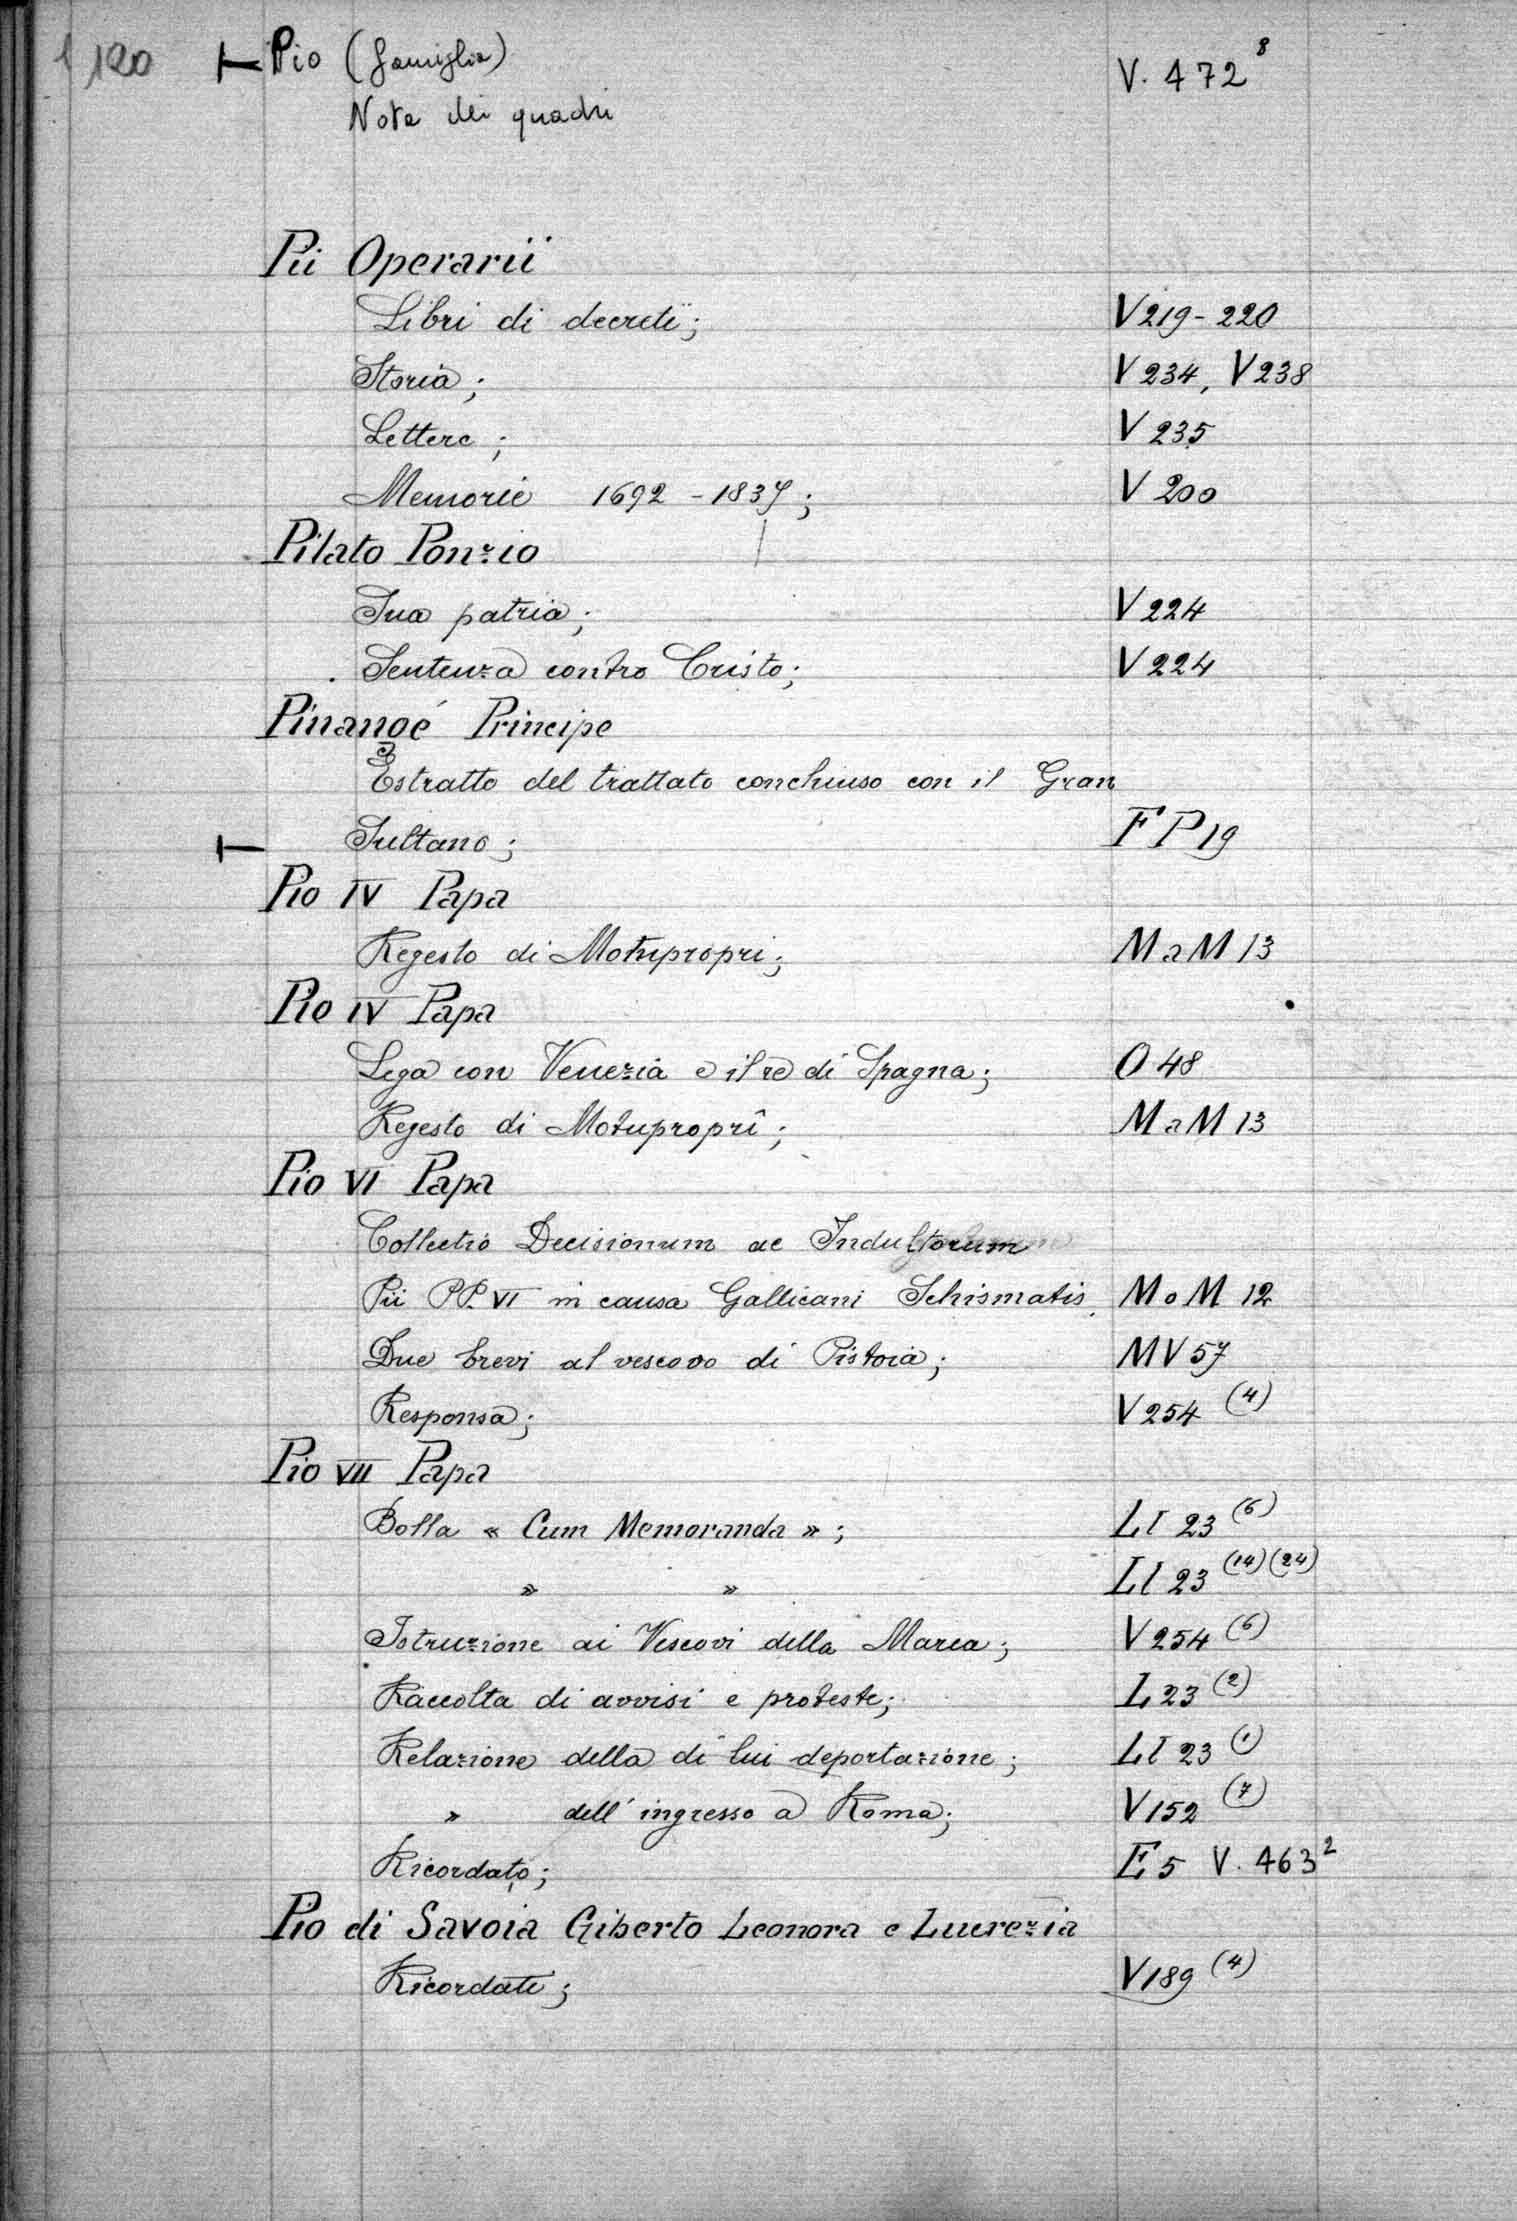 120 Pio (famiglia) V. 472 8
Nota dei quadri
Pii Operarii
Libri di decreti; V 219-220
Storia; V 234, V 238
Lettere; V 235
Memorie 1692 - 1837; V 200
Pilato Ponzio
Sua patria; V 224
Sentenza contro Cristo; V 224
Pinanoé Principe
Estratto del trattato conchiuso con il Gran
Sultano; F P 19
Pio IV Papa
Regesto di Motupropri; M a M 13
Pio IV Papa
Lega con Venezia e il re di Spagna; O 48
Regesto di Motuproprî; M a M 13
Pio VI Papa
Collectio Decisionum ac Indultorum
Pii PP. VI in causa Gallicani Schismatis, M o M 12
Due brevi al vescovo di Pistoia; M V 57
Responsa; V 254 (4)
Pio VII Papa
Bolla « Cum Memoranda »; LI 23 (6)
» » LI 23 (14) (24)
Istruzione ai Vescovi della Marca; V 254 (6)
Raccolta di avvisi e proteste; L 23 (2)
Relazione della di lui deportazione; LI 23 (1)
» dell'ingresso a Roma; V 152 (7)
Ricordato; E 5 V. 463 2
Pio di Savoia Giberto Leonora e Lucrezia
Ricordati; V 189 (4)